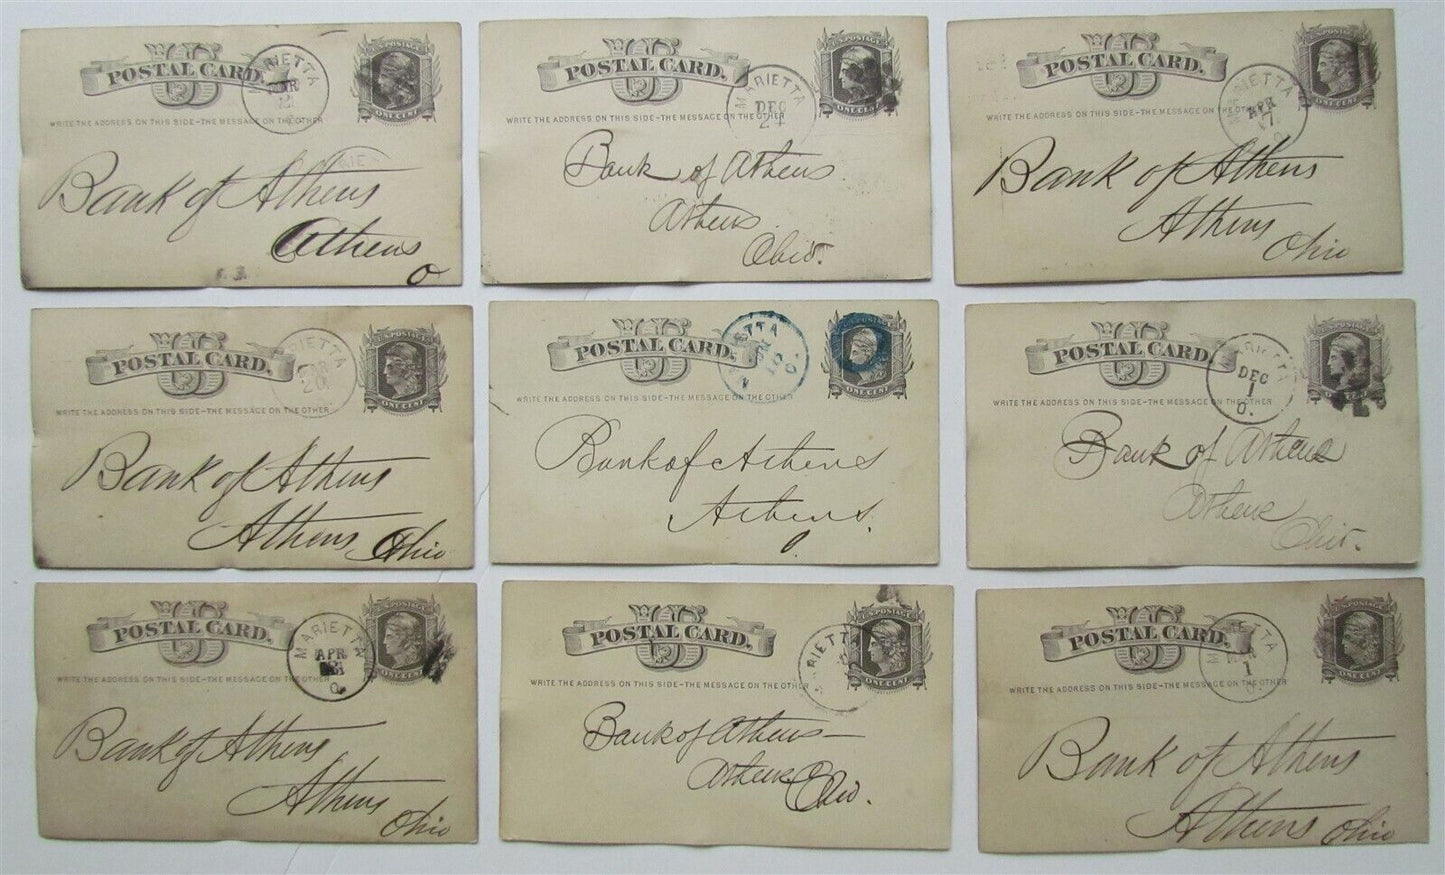 POSTAL CARD.
MARIETTA
MAR
O.
U.S. POSTAGE
ONE CENT
WRITE THE ADDRESS ON THIS SIDE-THE MESSAGE ON THE OTHER
Bank of Athens
Athens
O
POSTAL CARD.
MARIETTA
DEC
24
U.S. POSTAGE
ONE CENT
WRITE THE ADDRESS ON THIS SIDE-THE MESSAGE ON THE OTHER
Bank of Athens.
Athens
Ohio.
POSTAL CARD.
MARIETTA
APR
17
O
U.S. POSTAGE
ONE CENT
WRITE THE ADDRESS ON THIS SIDE-THE MESSAGE ON THE OTHER
Bank of Athens
Athens
Ohio
POSTAL CARD.
MARIETTA
20
U.S. POSTAGE
ONE CENT
WRITE THE ADDRESS ON THIS SIDE-THE MESSAGE ON THE OTHER
Bank of Athens
Athens Ohio
POSTAL CARD.
U.S. POSTAGE
WRITE THE ADDRESS ON THIS SIDE-THE MESSAGE ON THE OTHER
Bank of Athens
Athens.
O.
POSTAL CARD.
MARIETTA
DEC
1
O.
U.S. POSTAGE
ONE CENT
WRITE THE ADDRESS ON THIS SIDE-THE MESSAGE ON THE OTHER
Bank of Athens
Athens
Ohio.
POSTAL CARD.
MARIETTA
APR
O.
U.S. POSTAGE
ONE CENT
WRITE THE ADDRESS ON THIS SIDE-THE MESSAGE ON THE OTHER
Bank of Athens
Athens
Ohio
POSTAL CARD.
MARIETTA
U.S. POSTAGE
ONE CENT
WRITE THE ADDRESS ON THIS SIDE-THE MESSAGE ON THE OTHER
Bank of Athens
Athens
Ohio.
POSTAL CARD.
MARIETTA
1
O.
U.S. POSTAGE
ONE CENT
WRITE THE ADDRESS ON THIS SIDE-THE MESSAGE ON THE OTHER
Bank of Athens
Athens Ohio